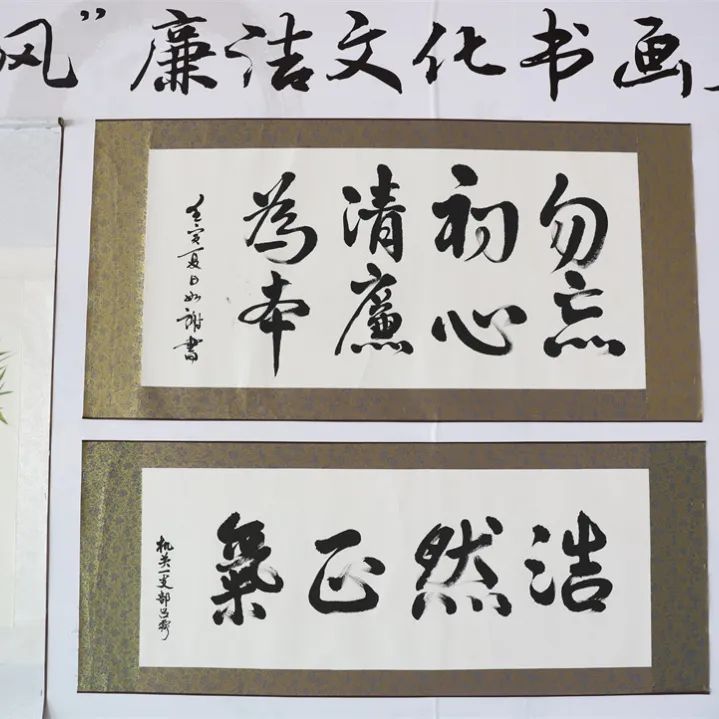 风”廉洁文化书画
勿忘
初心
清廉
為本
壬寅夏日如謝書
浩然正氣
机关一支部